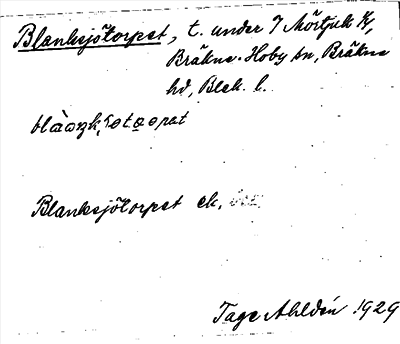 Blanksjötorpet, t. under 7 Mörtjuk ¼,
Bräkne-Hoby sn, Bräkne
hd, Blek. l.
Blanksjötorpet ek.
Tage Ahldén 1929